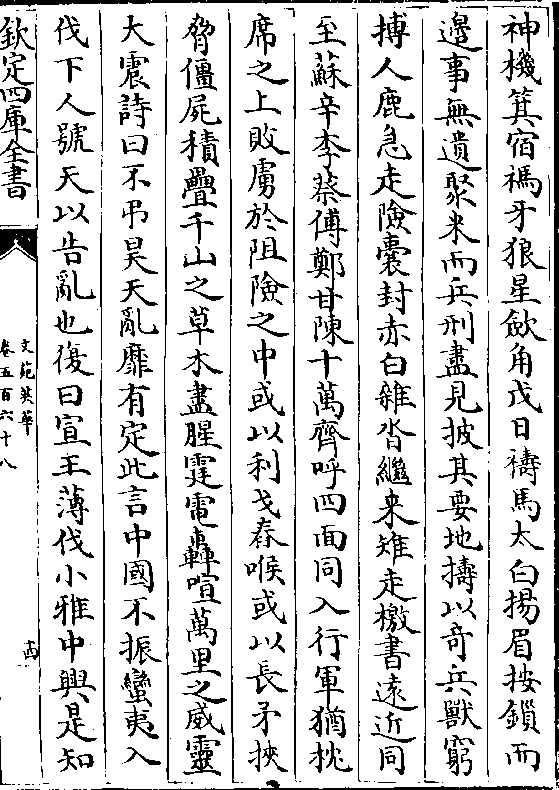 神機箕宿禡牙狼星歛角戊日禱馬太白揚眉按鎖而
邊事無遺聚米而兵刑盡見披其要地擣以竒兵獸窮
搏人鹿急走險囊封赤白雜沓繼来雉走檄書遠近同
至蘇辛李蔡傅鄭甘陳十萬齊呼四面同入行軍猶枕
席之上敗虜於阻險之中或以利戈舂喉或以長矛挾
脅僵屍積疊千山之草木盡腥霆電轟喧萬里之威靈
大震詩曰不弔昊天亂靡有定此言中國不振蠻夷入
伐下人號天以告亂也復曰宣王薄伐小雅中興是知
欽定四庫全書
文苑英華
卷五百六十八
十四